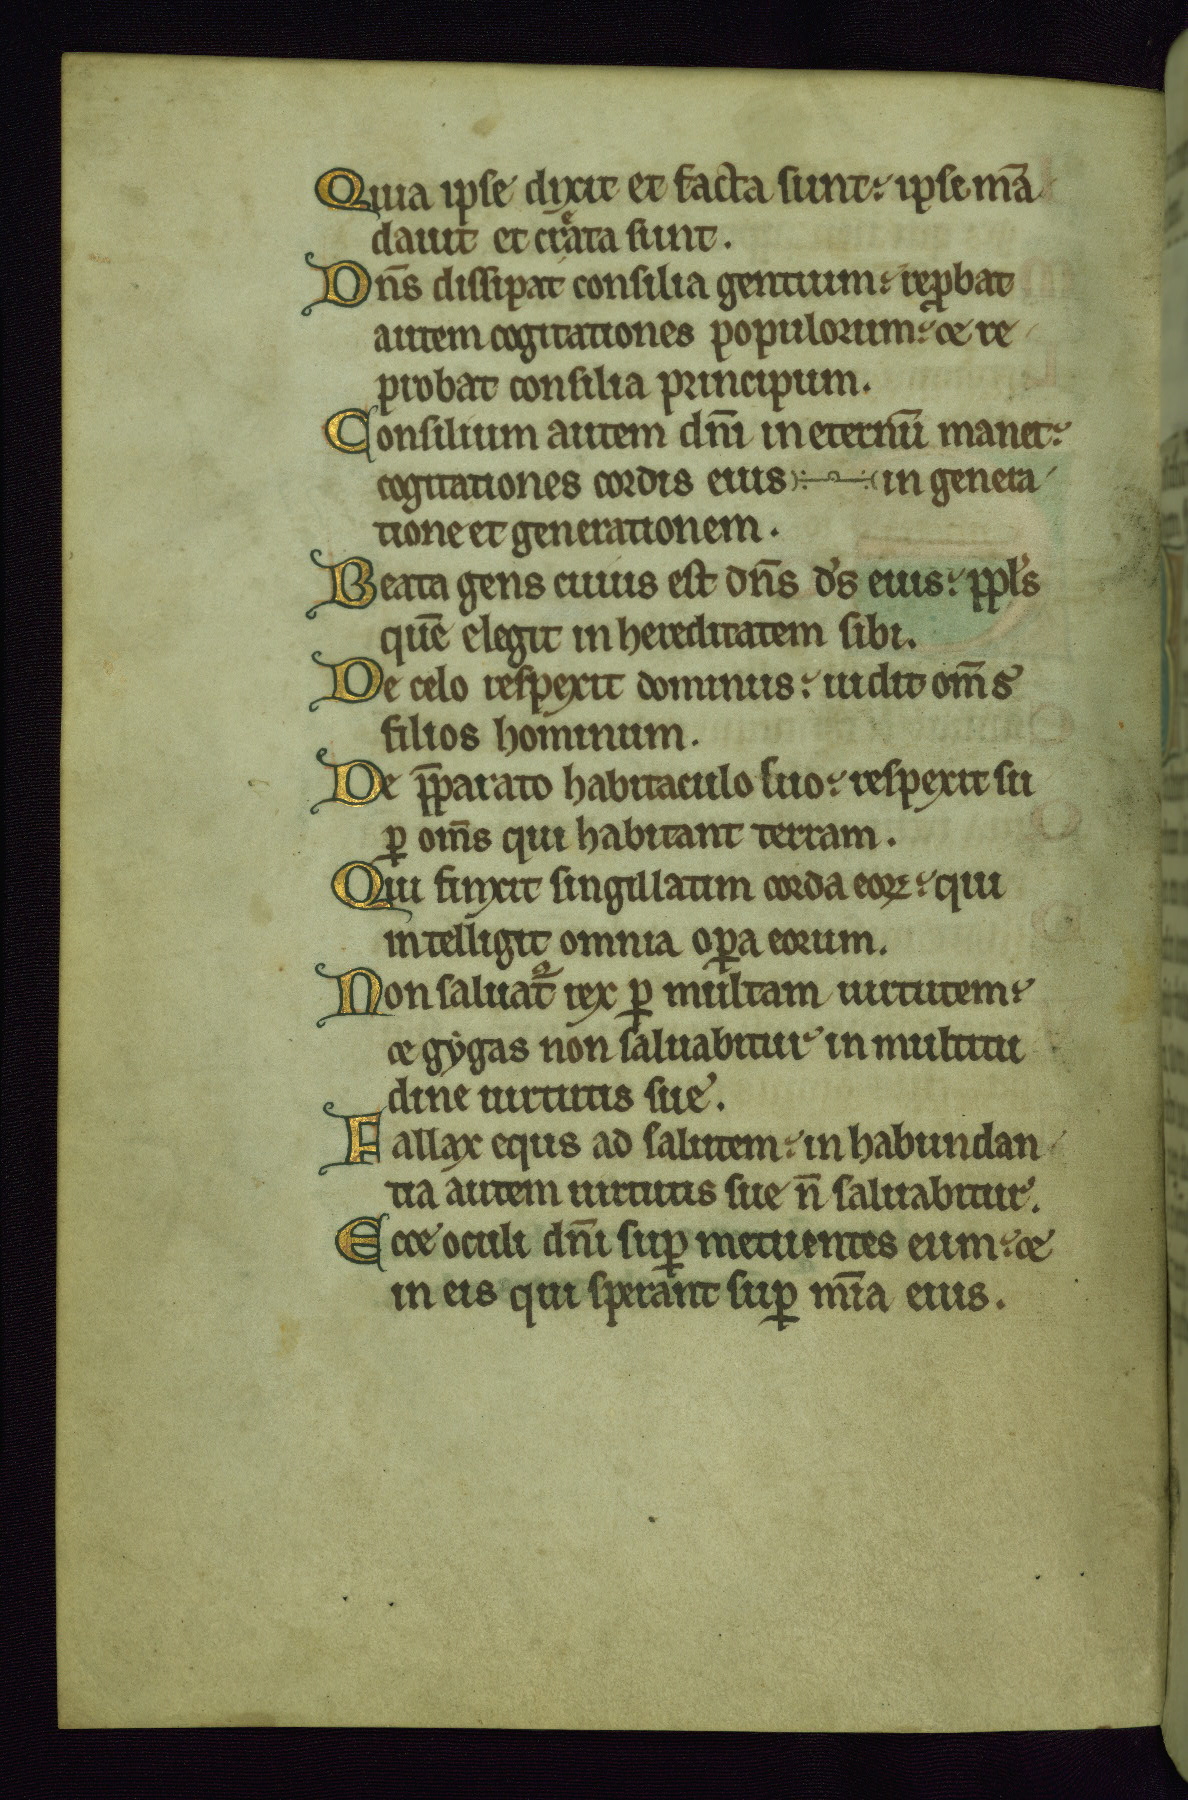 Quia ipse dixit et facta sunt: ipse mā
dauit et crͤata sunt.
Dn̄s dissipat consilia gentium: rep̱bat
autem cogitationes populorum: ⁊ re
probat consilia principum.
Consilium autem dn̄i in eternū manet:
cogitationes cordis eius in genera
tione et generationem.
Beata gens cuius est dn̄s d's eius: ppl's
quē elegit in hereditatem sibi.
De celo respexit dominus: uidit om̄s
filios hominum.
De p̄parato habitaculo suo: respexit su
ꝑ om̄s qui habitant terram.
Qui finxit singillatim corda eoꝝ: qui
intelligit omnia oꝑa eorum.
Non saluat᷑ rex ꝑ multam uirtutem:
⁊ gygas non saluabitur in multitu
dine uirtutis sue.
Fallax equs ad salutem: in habundan
tia autem uirtutis sue n̄ saluabitur.
Ecce oculi dn̄i suꝑ metuentes eum: ⁊
in eis qui sperant suꝑ mīa eius.